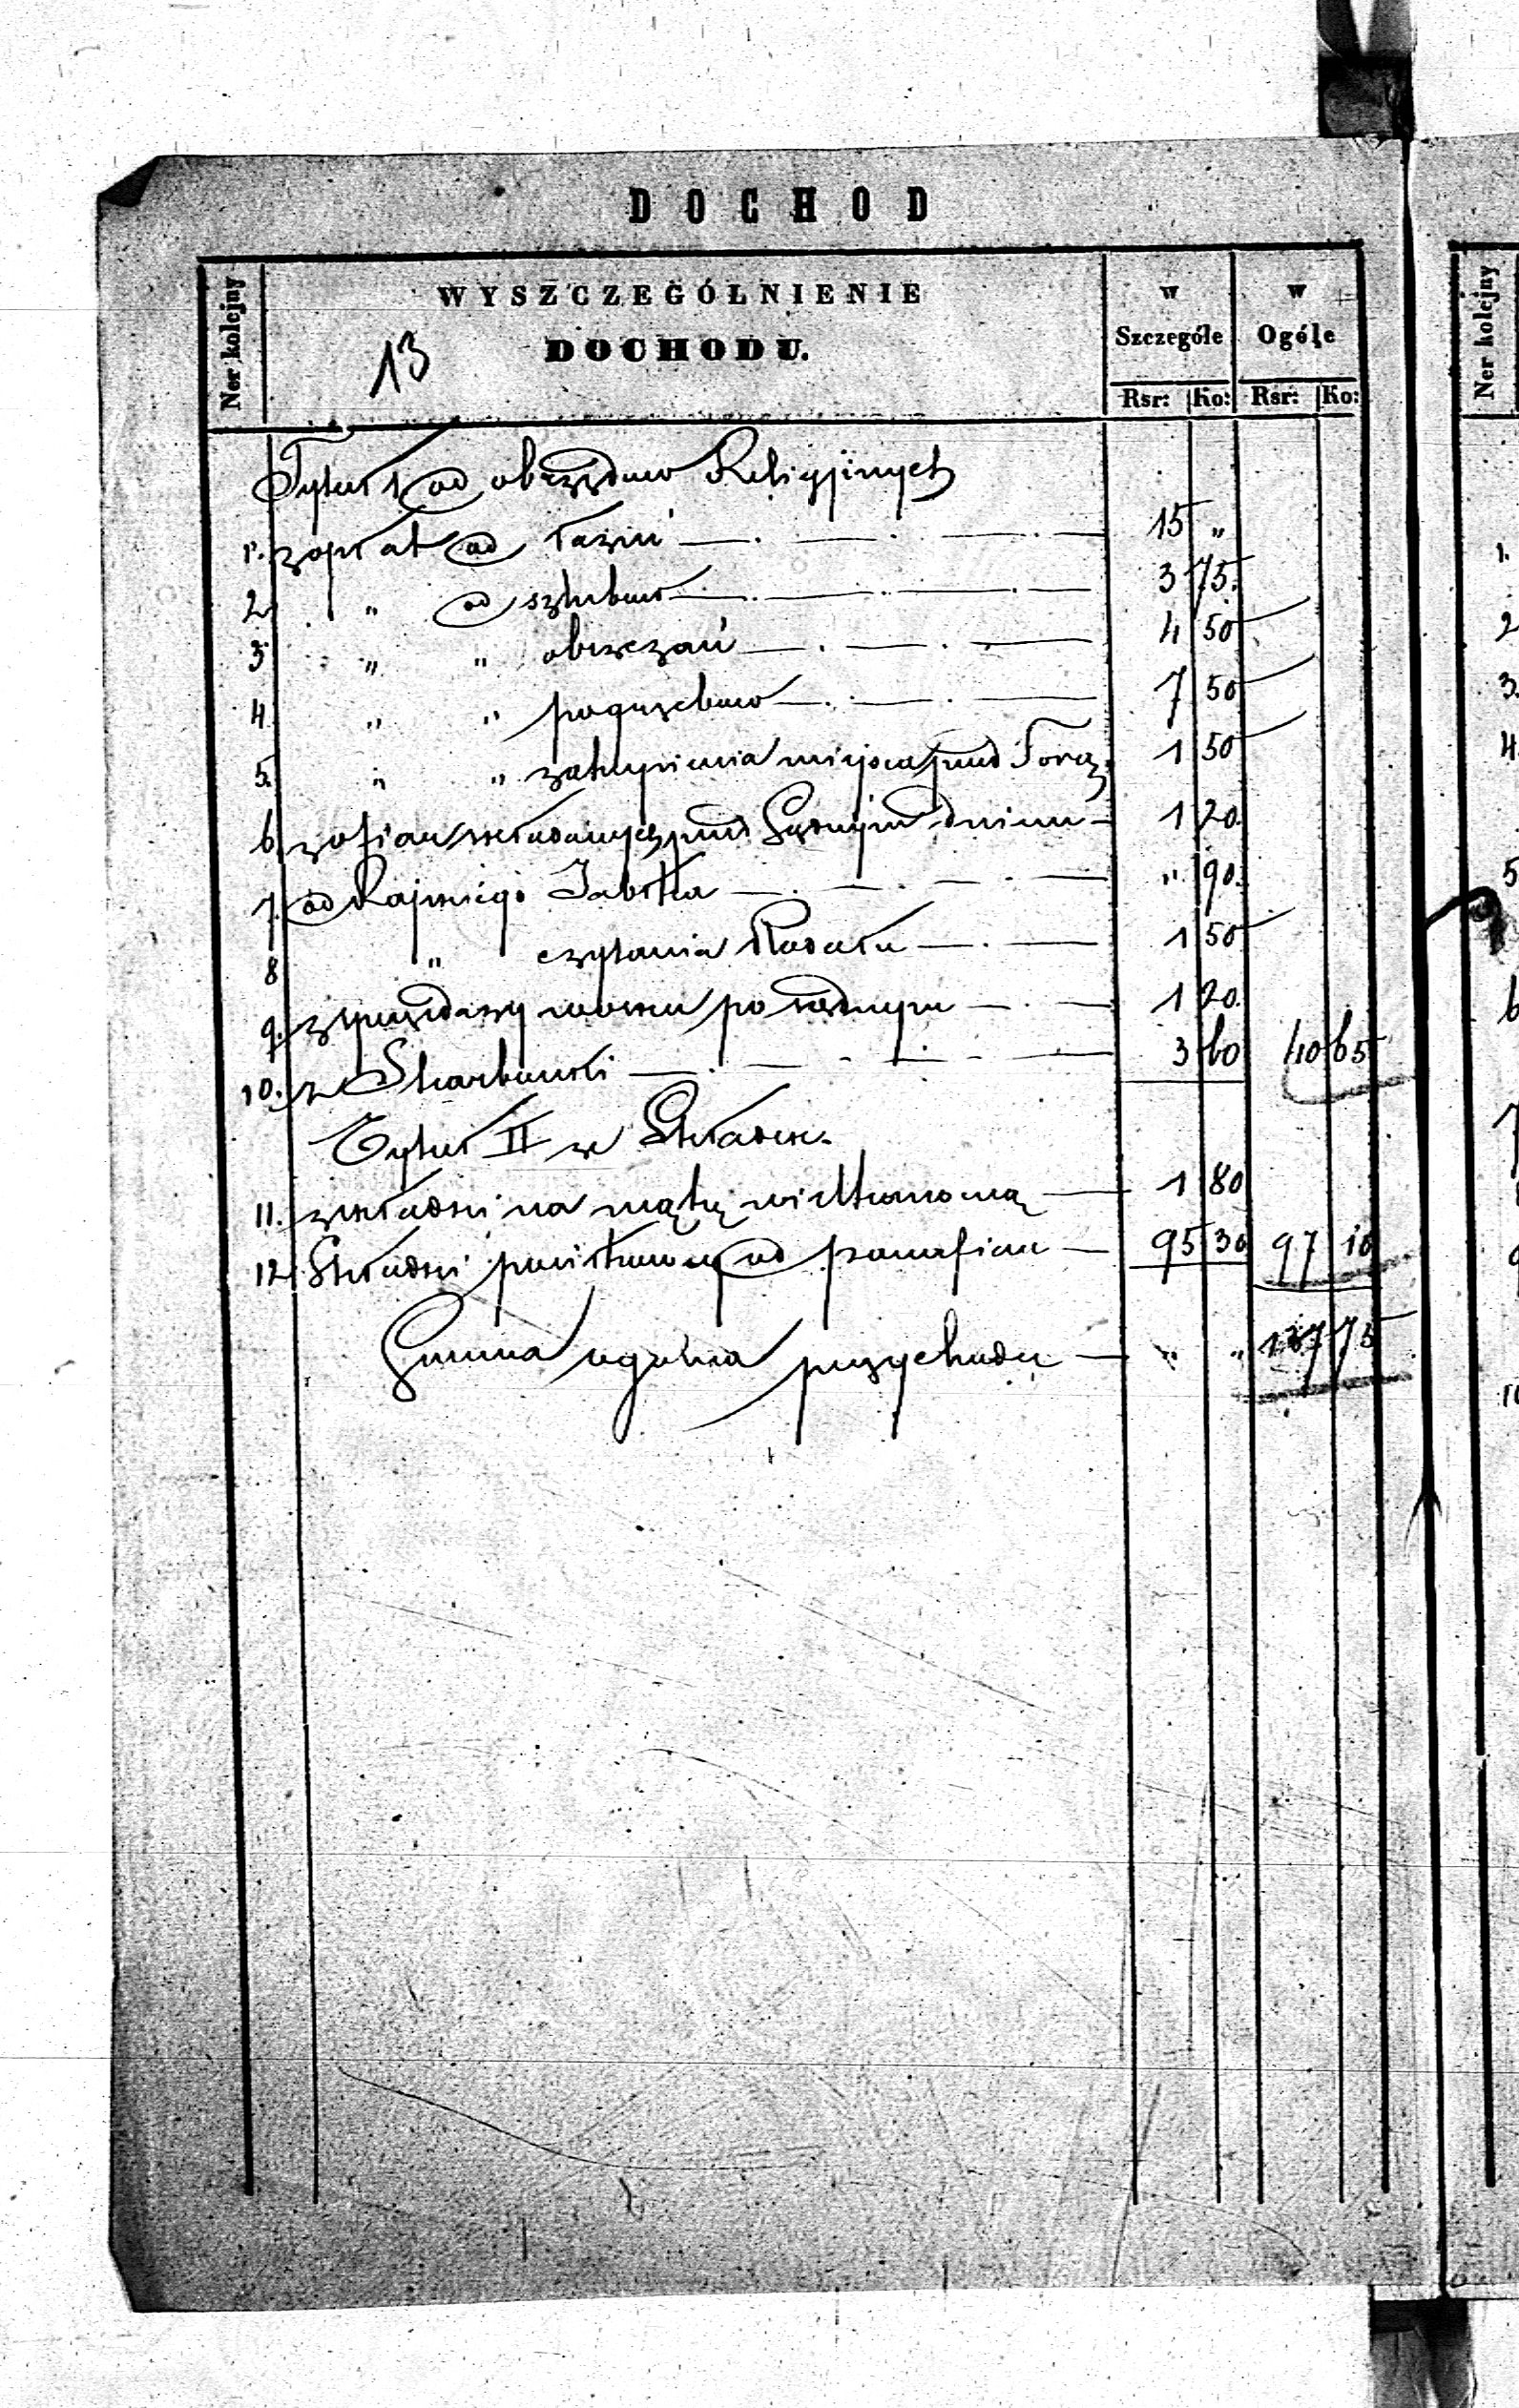 DOCHOD
Ner kolejny
WYSZCZEGÓLNIENIE
DOCHODU.
13
w Szczególe
w Ogóle
Rsr: Ko: Rsr: Ko:
Tytuł 1 od obrzędów Religyjnych
1. z opłat od łaźni 15 "
2 " od szlubow 3 75.
3 " " obrzezań 4 50
4 " " pogrzebow 7 50
5. " " zakupienia miejsca pred Torą 1 50
6 z ofiar składanych pred Sądnym dniem 1 20.
7. od Rajskiego Jabłka " 90.
8 " czytania Rodału 1 50
9. z sprzedazy wosku po sądnym 1 20.
10. z Skarbonki 3 60 40 65
Tytuł II z Składek
11. z składki na mąkę wielkanocną 1 80
12 Składki od parafian 95 30 97 10
Summa ogolna przychodu " " 137 75
Ner kolejny
1.
2
3.
4.
5
6
7
9
10